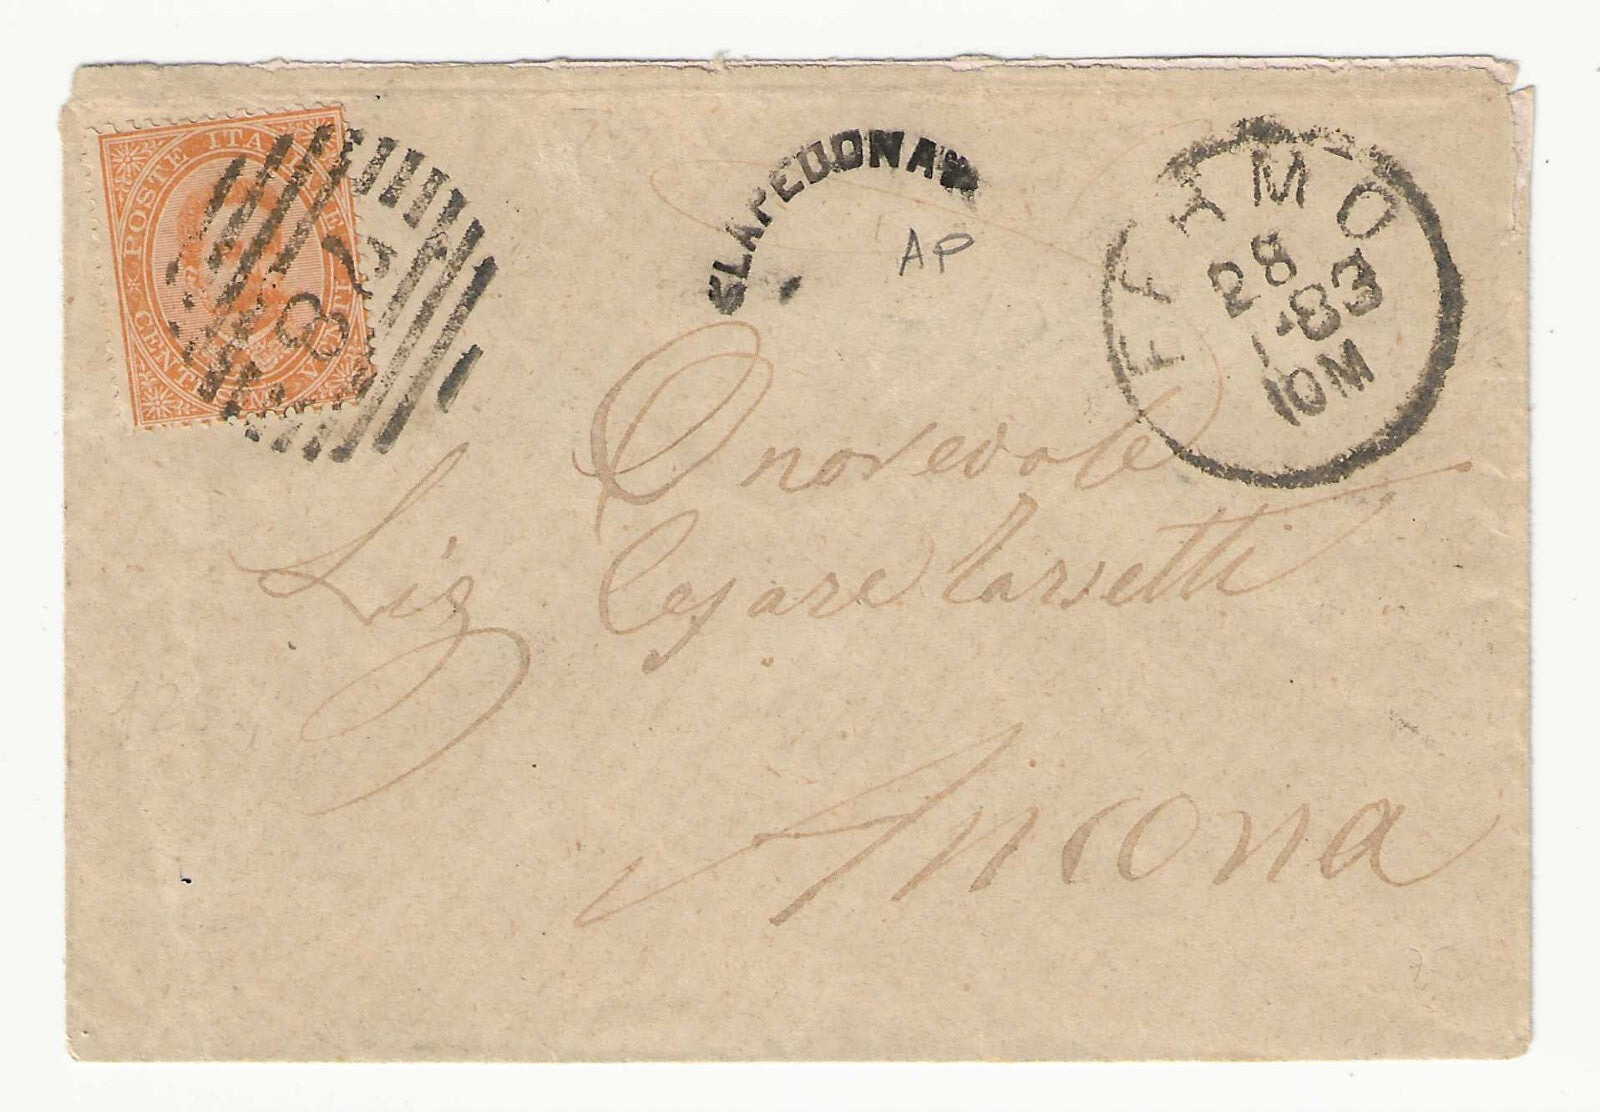 POSTE ITALIANE
CENT. VENTI
87
SLAPEDONA
AP
FERMO
28
1-83
10M
Onorevole
Sig Cesare Tarsetti
Ancona